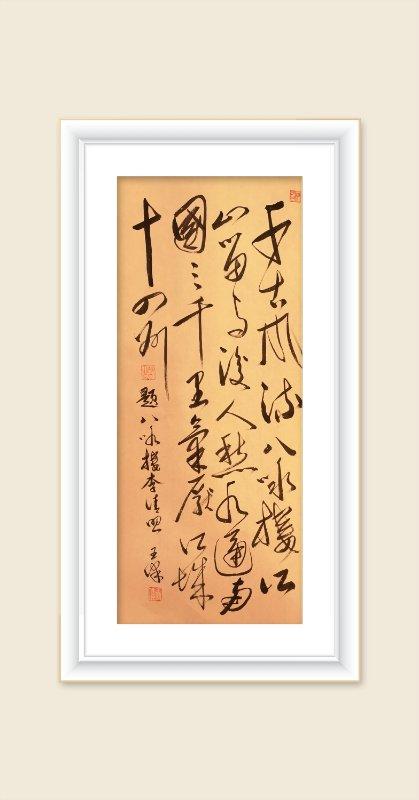 千古風流八咏樓江
山留与後人愁水通南
國三千里氣壓江城
十四州
題八咏樓李清照 王